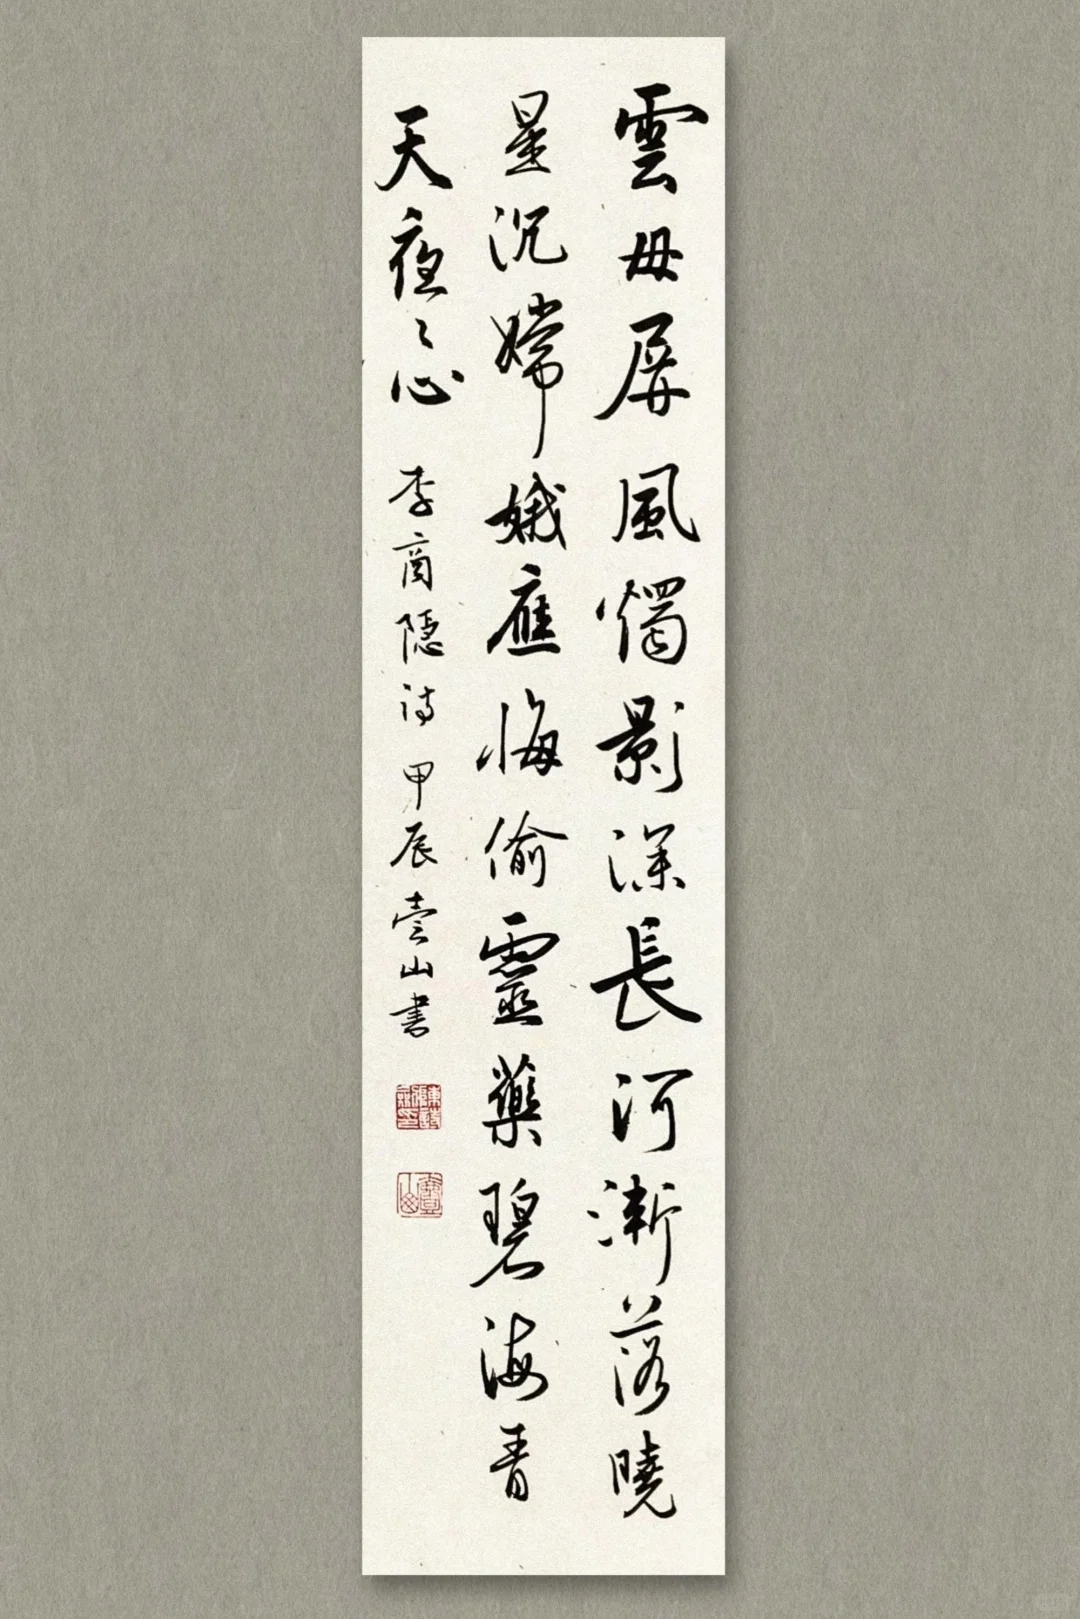 雲母屏風燭影深長河漸落曉
星沉嫦娥應悔偷靈藥碧海青
天夜〻心 李商隱诗 甲辰 壹山书